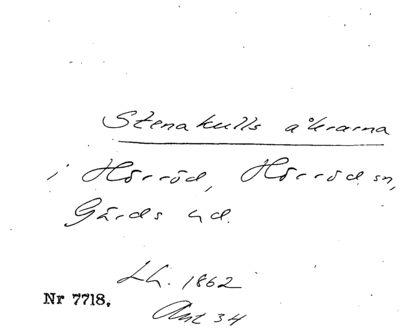 Stenakulls åkrarna
i Hörröd, Hörröds sn,
Gärds hd.
Lh. 1862
Nr 7718.
Akt 34